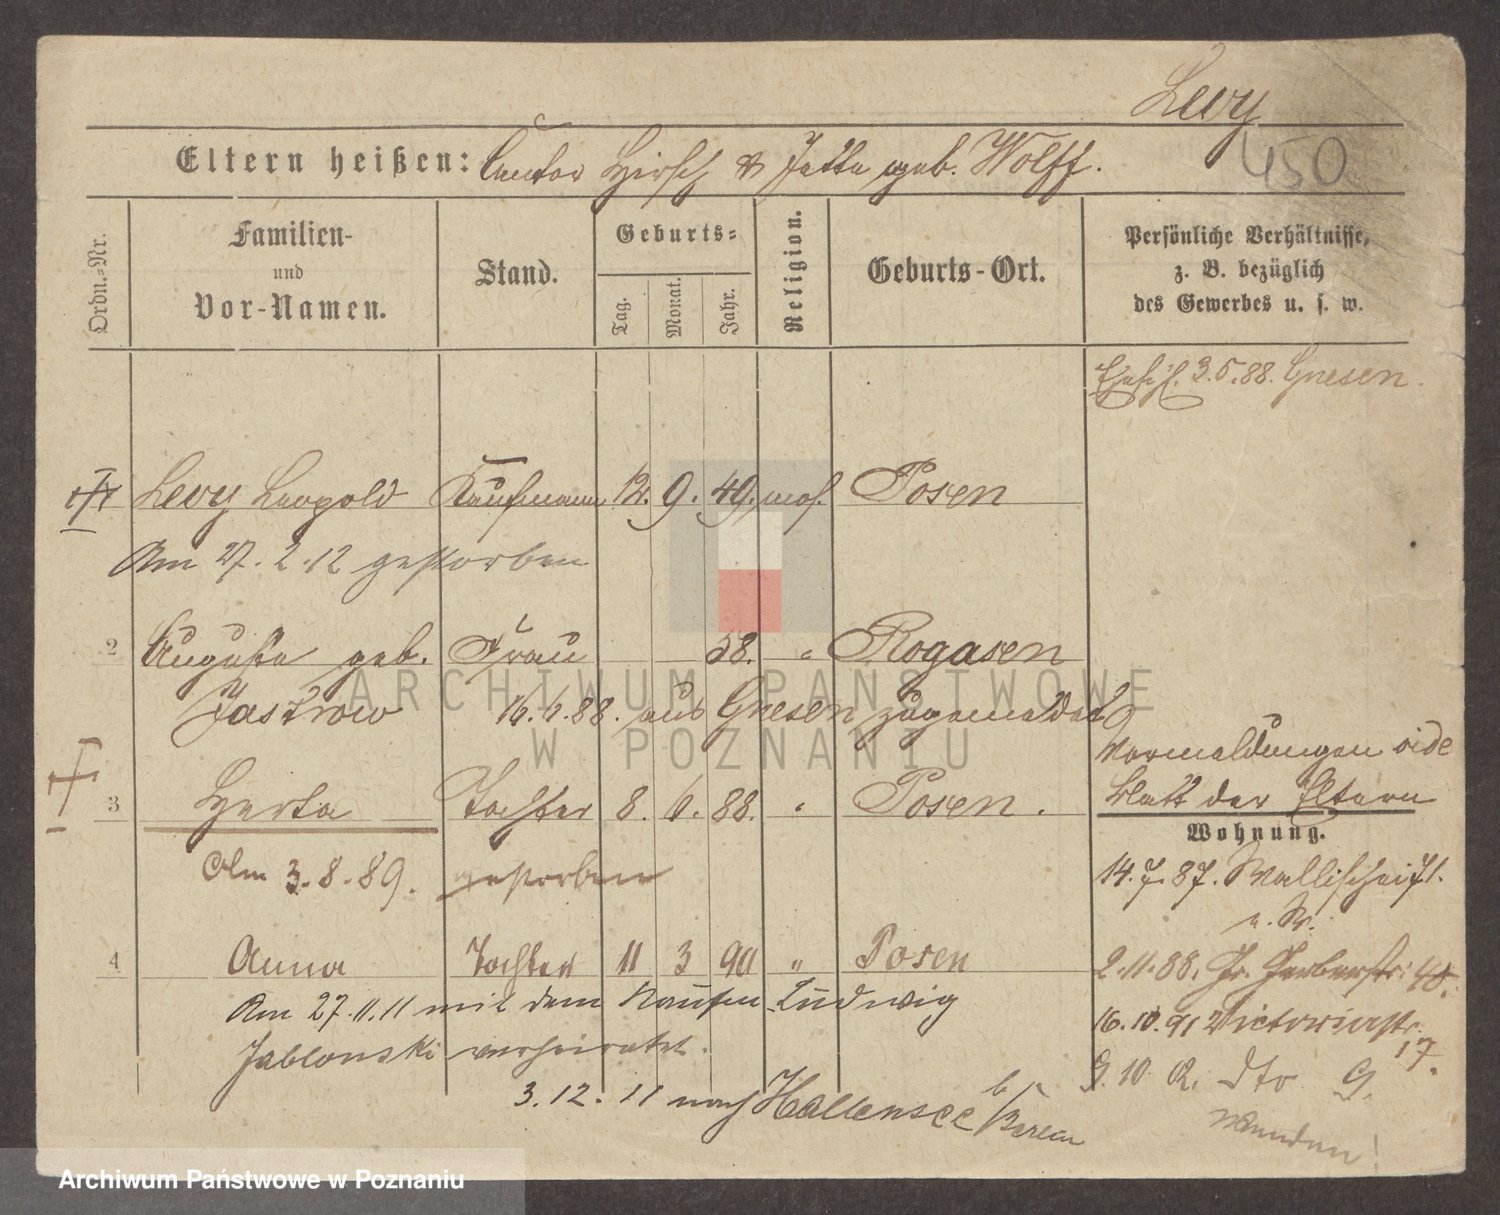 Levy
450
Eltern heißen: Cantor Hirsch & Jette geb. Wolff.
Ordn.=Nr.
Familien-
und
Vor-Namen.
Stand.
Geburts=
Tag.
Monat.
Jahr.
Religion.
Geburts-Ort.
Persönliche Verhältnisse,
z. B. bezüglich
des Gewerbes u. s. w.
3.5.88. Gnesen.
Levy Leopold Kaufmann 12. 9. 49. mos. Posen
Am 27.2.12 gestorben
2 Auguste geb. Frau 58. " Rogasen
Jastrow 16.6.88. aus Gnesen zugemeldet
Vormeldungen vide
3 Herta Tochter 8. 6. 88. " Posen.
Blatt der Eltern
Wohnung.
Am 3.8.89. gestorben
14.7.87. Wallischei 71.
4 Anna Tochter 11 3 90 " Posen
2.11.88. Gr. Gerberstr. 40.
Am 27.11.11 mit dem Kaufm. Ludwig
16.10.91 Victoriastr.
17.
Jablonski verheiratet.
9.10 R. dto 9.
3.12.11 nach Hallensee b/Berlin
Wenden!
ARCHIWUM PAŃSTWOWE
W POZNANIU
Archiwum Państwowe w Poznaniu